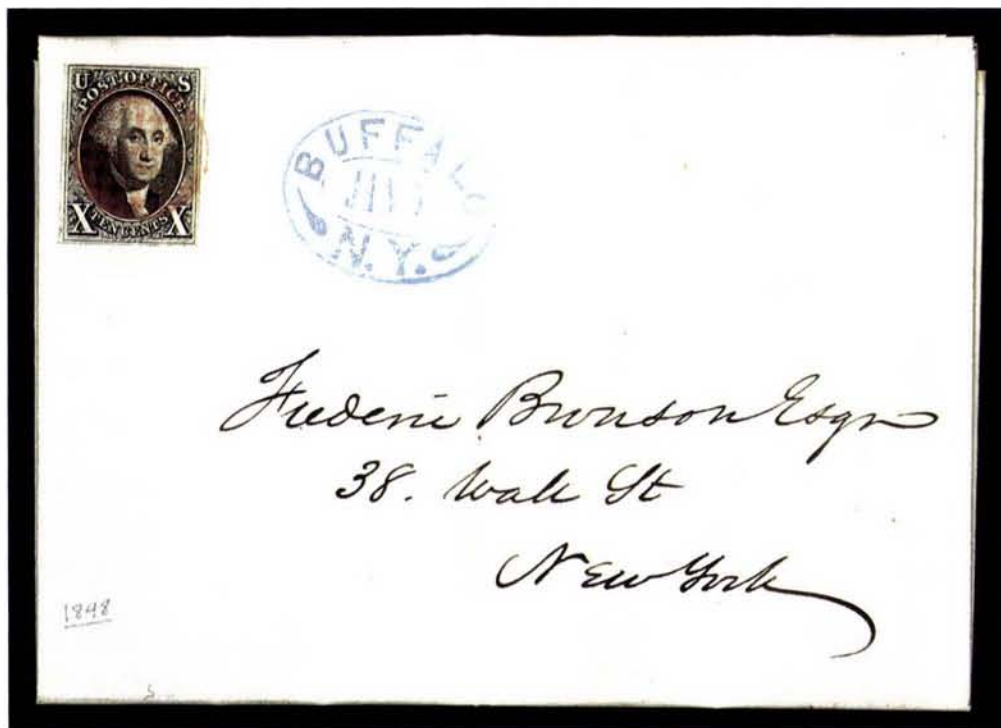 U S
POST OFFICE
X TEN CENTS X
BUFFALO
N.Y.
Frederic Bronson Esqr
38. Wall St
New York
1848